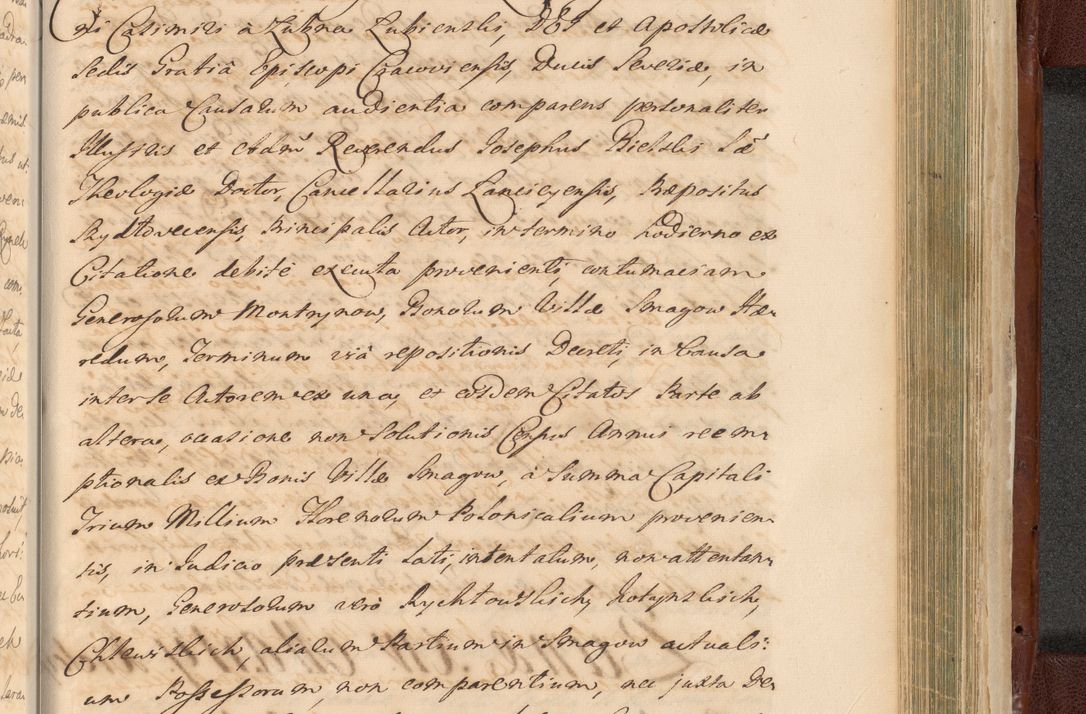 ni Casimiri à Lubna Lubienski, DEI et Apostolicæ
Sedis Gratiâ Episcopi Cracoviensis, Ducis Severiæ, in
publica Causarum audientia comparens personaliter
Illustris et Adm Reverendus Josephus Bielski Sæ
Theologiæ Doctor, Cancellarius Lanciciensis, Præpositus
Rydtoviecensis, Principalis Actor, in termino hodierno ex
Citatione debitè executa provenienti, contumaciam
Generosorum Montrynow, Bonorum Villæ Smagow Hæ-
redum, Terminum vià repositionis Decreti, in Causa
inter se Actorem ex una, et eosdem Citatos Parte ab
altera, occasione non Solutionis Census Annui reem-
ptionalis ex Bonis Villæ Smagow, à Summa Capitali
Trium Millium Florenorum Polonicalium provenien-
tis, in Judicio præsenti lati, intentatum, non attentan-
tium, Generosorum verò Rychtowskich, Kotynskich,
Chlewiskich, aliarum Partium in Smagow actuali:
um Possessorum, non comparentium, nec juxta De-